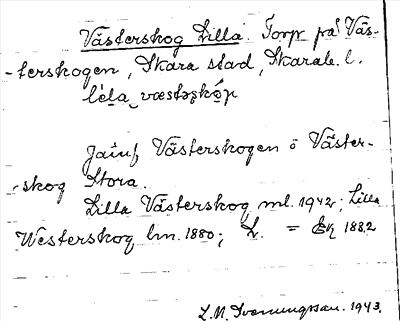 Västerskog Lilla. Torp på Väs-
-terskogen, Skara stad, Skarab. l.
Jämf Västerskogen o Väster-
-skog Stora.
Lilla Västerskog ml. 1942; Lilla
Westerskog hn. 1880; L. = Ek 1882
L.M. Svenungsson. 1943.